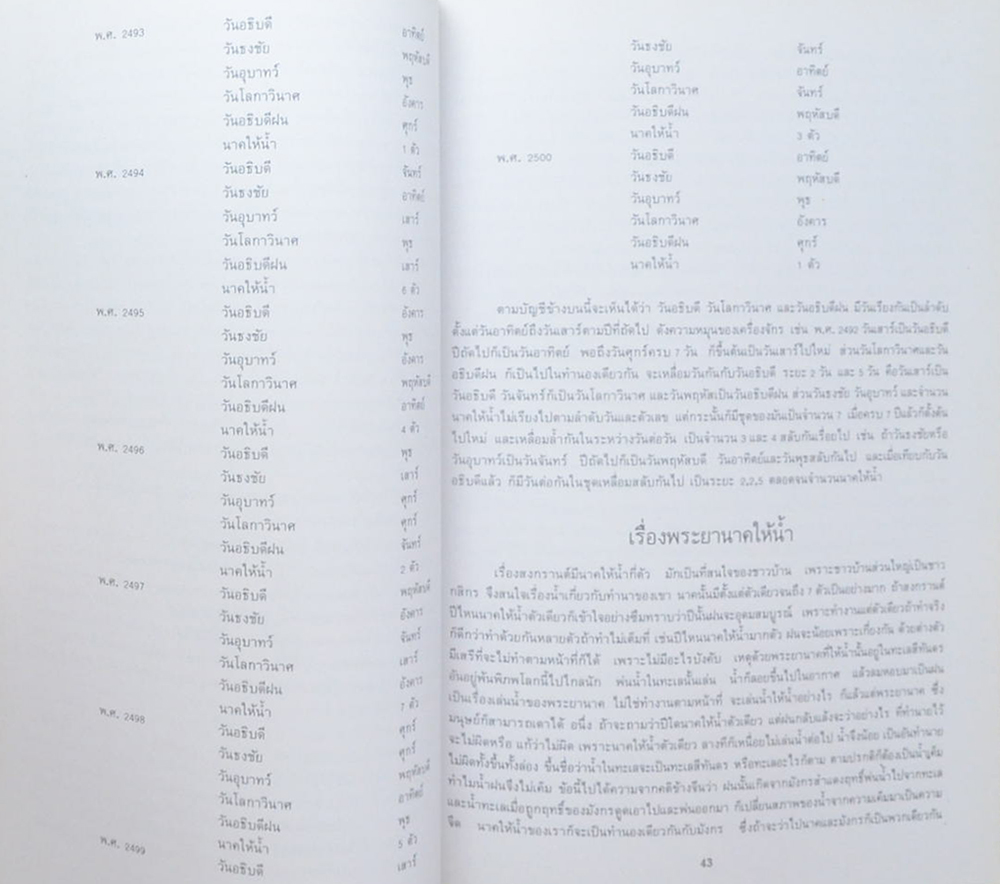 พ.ศ. 2493 วันอธิบดี อาทิตย์
วันธงชัย พฤหัสบดี
วันอุบาทว์ พุธ
วันโลกาวินาศ อังคาร
วันอธิบดีฝน ศุกร์
นาคให้น้ำ 1 ตัว
พ.ศ. 2494 วันอธิบดี จันทร์
วันธงชัย อาทิตย์
วันอุบาทว์ เสาร์
วันโลกาวินาศ พุธ
วันอธิบดีฝน เสาร์
นาคให้น้ำ 6 ตัว
พ.ศ. 2495 วันอธิบดี อังคาร
วันธงชัย พุธ
วันอุบาทว์ อังคาร
วันโลกาวินาศ พฤหัสบดี
วันอธิบดีฝน อาทิตย์
นาคให้น้ำ 4 ตัว
พ.ศ. 2496 วันอธิบดี พุธ
วันธงชัย เสาร์
วันอุบาทว์ ศุกร์
วันโลกาวินาศ ศุกร์
วันอธิบดีฝน จันทร์
นาคให้น้ำ 2 ตัว
พ.ศ. 2497 วันอธิบดี พฤหัสบดี
วันธงชัย อังคาร
วันอุบาทว์ จันทร์
วันโลกาวินาศ เสาร์
วันอธิบดีฝน อังคาร
นาคให้น้ำ 7 ตัว
พ.ศ. 2498 วันอธิบดี ศุกร์
วันธงชัย ศุกร์
วันอุบาทว์ พฤหัสบดี
วันโลกาวินาศ อาทิตย์
วันอธิบดีฝน พุธ
นาคให้น้ำ 5 ตัว
พ.ศ. 2499 วันอธิบดี เสาร์
วันธงชัย จันทร์
วันอุบาทว์ อาทิตย์
วันโลกาวินาศ จันทร์
วันอธิบดีฝน พฤหัสบดี
นาคให้น้ำ 3 ตัว
พ.ศ. 2500 วันอธิบดี อาทิตย์
วันธงชัย พฤหัสบดี
วันอุบาทว์ พุธ
วันโลกาวินาศ อังคาร
วันอธิบดีฝน ศุกร์
นาคให้น้ำ 1 ตัว
ตามบัญชีข้างบนนี้จะเห็นได้ว่า วันอธิบดี วันโลกาวินาศ และวันอธิบดีฝน มีวันเรียงกันเป็นลำดับ
ตั้งแต่วันอาทิตย์ถึงวันเสาร์ตามปีที่ถัดไป ดังความหมุนของเครื่องจักร เช่น พ.ศ. 2492 วันเสาร์เป็นวันอธิบดี
ปีถัดไปก็เป็นวันอาทิตย์ พอถึงวันศุกร์ครบ 7 วัน ก็ขึ้นต้นเป็นวันเสาร์ไปใหม่ ส่วนวันโลกาวินาศและวัน
อธิบดีฝน ก็เป็นไปในทำนองเดียวกัน จะเหลื่อมวันกันกับวันอธิบดี ระยะ 2 วัน และ 5 วัน คือวันเสาร์เป็น
วันอธิบดี วันจันทร์ก็เป็นวันโลกาวินาศ และวันพฤหัสเป็นวันอธิบดีฝน ส่วนวันธงชัย วันอุบาทว์ และจำนวน
นาคให้น้ำไม่เรียงไปตามลำดับวันและตัวเลข แต่กระนั้นก็มีชุดของมันเป็นจำนวน 7 เมื่อครบ 7 ปีแล้วก็ตั้งต้น
ไปใหม่ และเหลื่อมล้ำกันในระหว่างวันต่อวัน เป็นจำนวน 3 และ 4 สลับกันเรื่อยไป เช่น ถ้าวันธงชัยหรือ
วันอุบาทว์เป็นวันจันทร์ ปีถัดไปก็เป็นวันพฤหัสบดี วันอาทิตย์และวันพุธสลับกันไป และเมื่อเทียบกับวัน
อธิบดีแล้ว ก็มีวันต่อกันในชุดเหลื่อมสลับกันไป เป็นระยะ 2,2,5 ตลอดจนจำนวนนาคให้น้ำ
เรื่องพระยานาคให้น้ำ
เรื่องสงกรานต์มีนาคให้น้ำกี่ตัว มักเป็นที่สนใจของชาวบ้าน เพราะชาวบ้านส่วนใหญ่เป็นชาว
กสิกร จึงสนใจเรื่องน้ำเกี่ยวกับทำนาของเขา นาคนั้นมีตั้งแต่ตัวเดียวจนถึง 7 ตัวเป็นอย่างมาก ถ้าสงกรานต์
ปีไหนนาคให้น้ำตัวเดียวก็เข้าใจอย่างซึมทราบว่าปีนั้นฝนจะอุดมสมบูรณ์ เพราะทำงานแต่ตัวเดียวถ้าทำจริง
ก็ดีกว่าทำด้วยกันหลายตัวถ้าทำไม่เต็มที่ เช่นปีไหนนาคให้น้ำมากตัว ฝนจะน้อยเพราะเกี่ยงกัน ด้วยต่างตัว
มีเสรีที่จะไม่ทำตามหน้าที่ก็ได้ เพราะไม่มีอะไรบังคับ เหตุด้วยพระยานาคที่ให้น้ำนั้นอยู่ในทะเลสีทันดร
อันอยู่พ้นพิภพโลกนี้ไปไกลนัก พ่นน้ำในทะเลนั้นเล่น น้ำก็ลอยขึ้นไปในอากาศ แล้วลมหอบมาเป็นฝน
เป็นเรื่องเล่นน้ำของพระยานาค ไม่ใช่ทำงานตามหน้าที่ จะเล่นน้ำให้น้ำอย่างไร ก็แล้วแต่พระยานาค ซึ่ง
มนุษย์ก็สามารถเดาได้ อนึ่ง ถ้าจะถามว่าปีใดนาคให้น้ำตัวเดียว แต่ฝนกลับแล้งจะว่าอย่างไร ที่ทำนายไว้
จะไม่ผิดหรือ แก้ว่าไม่ผิด เพราะนาคให้น้ำตัวเดียว ลางทีก็เหนื่อยไม่เล่นน้ำต่อไป น้ำจึงน้อย เป็นอันทำนาย
ไม่ผิดทั้งขึ้นทั้งล่อง ขึ้นชื่อว่าน้ำในทะเลจะเป็นทะเลสีทันดร หรือทะเลอะไรก็ตาม ตามปรกติก็ต้องเป็นน้ำเค็ม
ทำไมน้ำฝนจึงไม่เค็ม ข้อนี้ไปได้ความจากคติข้างจีนว่า ฝนนั้นเกิดจากมังกรสำแดงฤทธิ์พ่นน้ำไปจากทะเล
และน้ำทะเลเมื่อถูกฤทธิ์ของมังกรดูดเอาไปและพ่นออกมา ก็เปลี่ยนสภาพของน้ำจากความเค็มมาเป็นความ
จืด นาคให้น้ำของเราก็จะเป็นทำนองเดียวกันกับมังกร ซึ่งถ้าจะว่าไปนาคและมังกรก็เป็นพวกเดียวกัน
43